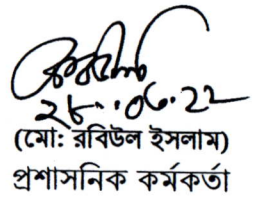 ২৮.০৬.২২
(মো: রবিউল ইসলাম)
প্রশাসনিক কর্মকর্তা